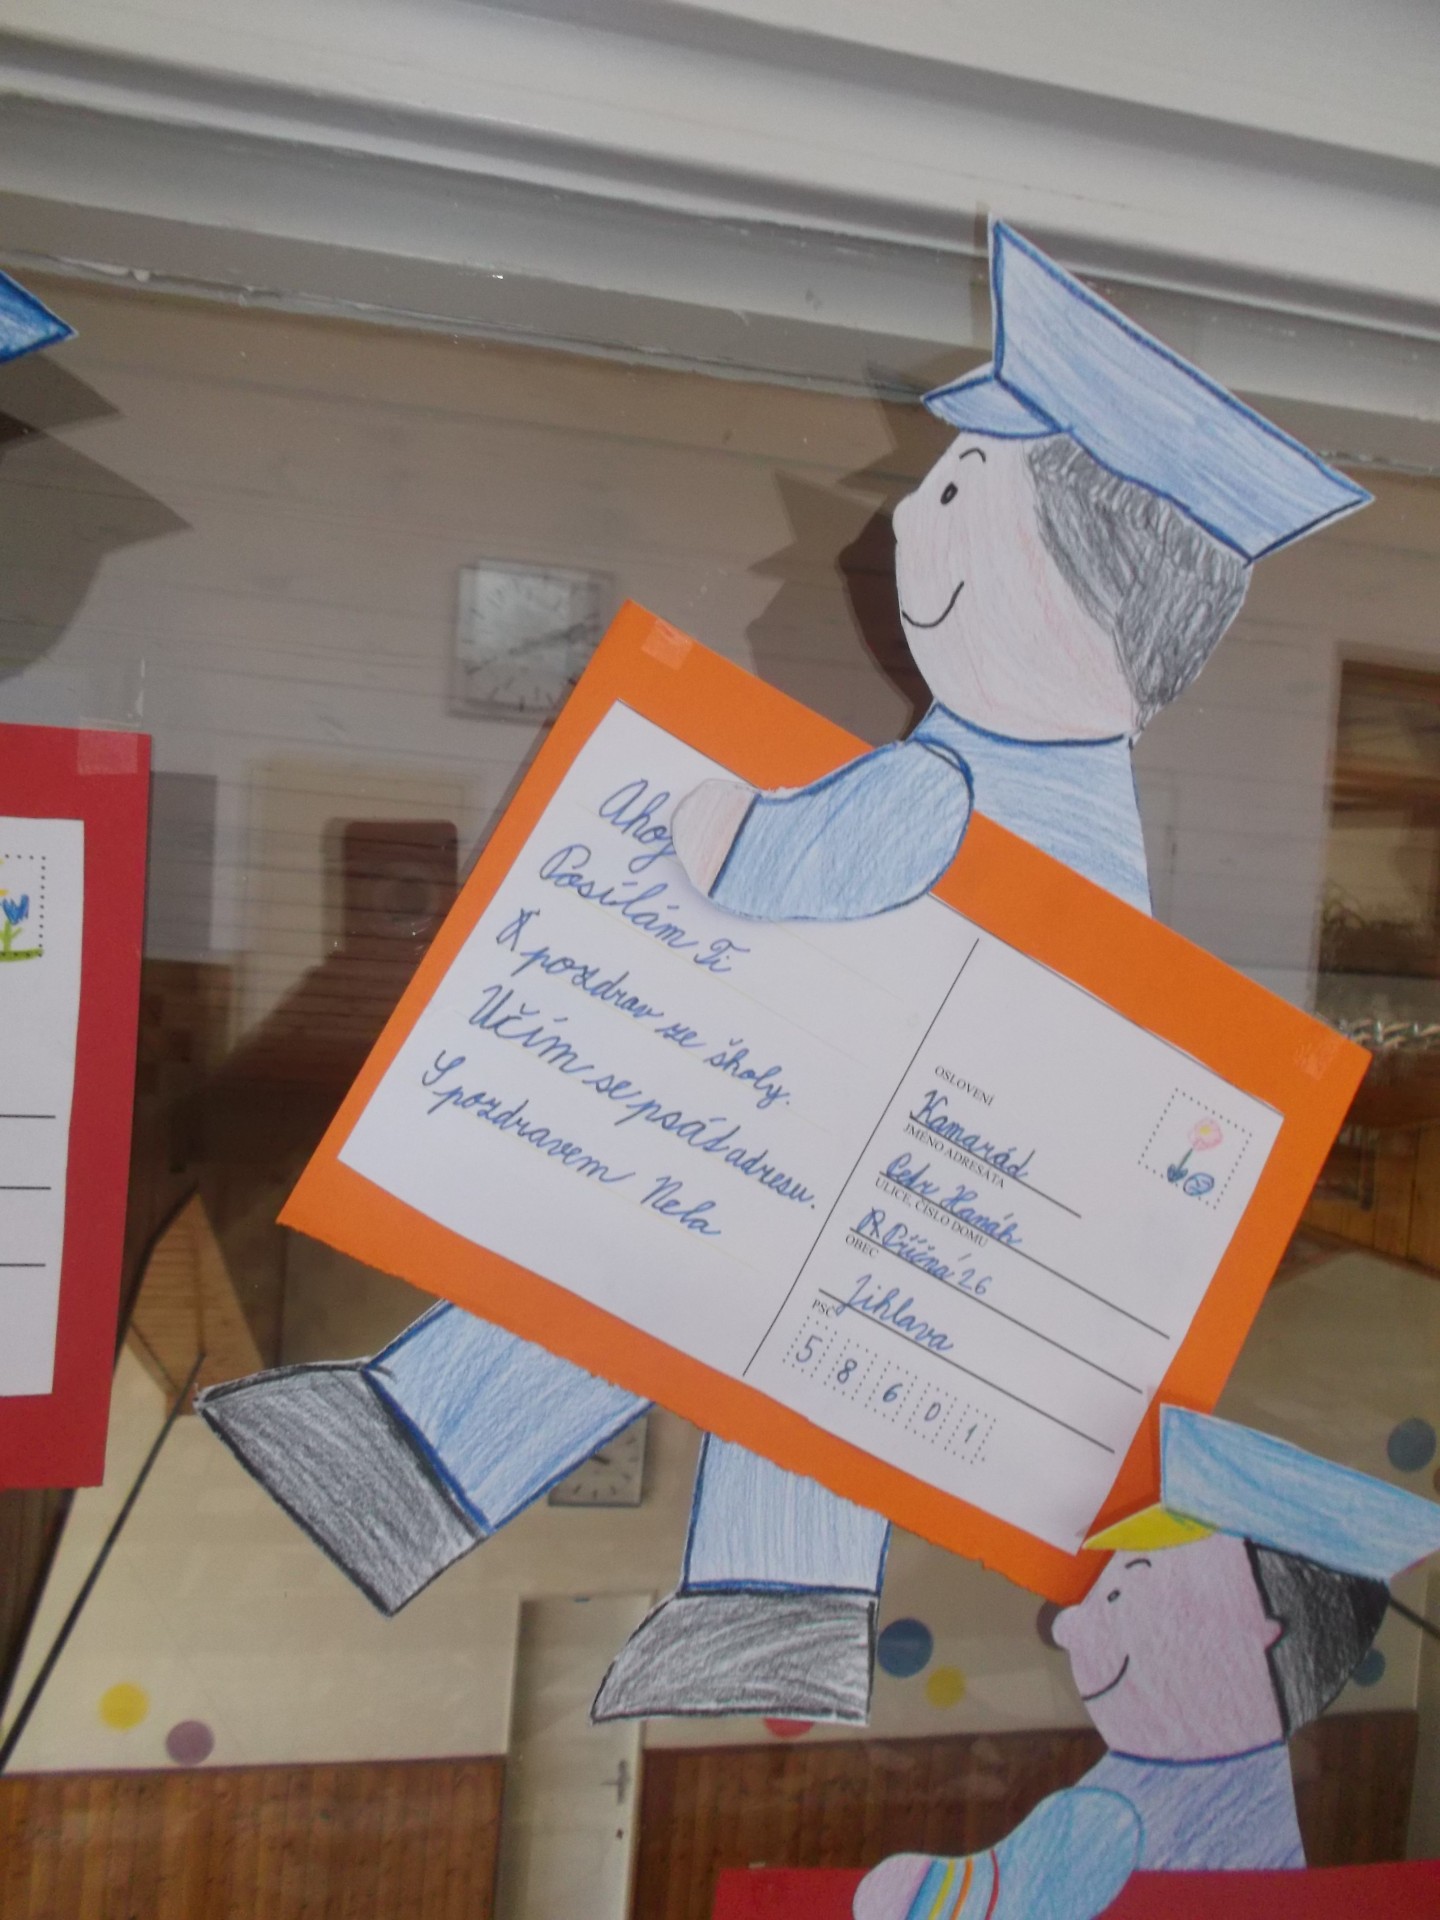 Ahoj
Posílám Ti
pozdrav ze školy.
Učím se psát adresu.
S pozdravem Nela
OSLOVENÍ
Kamarád
JMÉNO ADRESÁTA
Petr Hanák
ULICE, ČÍSLO DOMU
Příčná 26
OBEC
Jihlava
PSČ
5 8 6 0 1